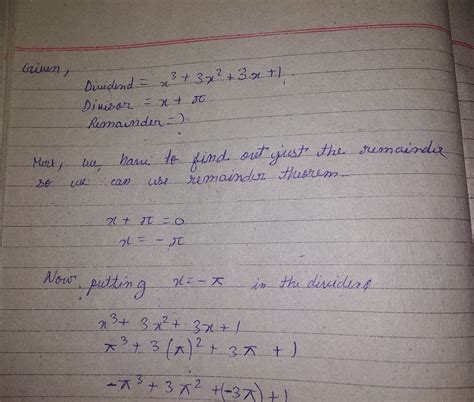 Given,
Dividend = x³ + 3x² + 3x + 1
Divisor = x + π
Remainder = ?
Here, we have to find out just the remainder
so we can use remainder theorem
x + π = 0
x = - π
Now, putting x = - π in the dividend
x³ + 3x² + 3x + 1
π³ + 3(π)² + 3π + 1
-π³ + 3π² + (-3π) + 1